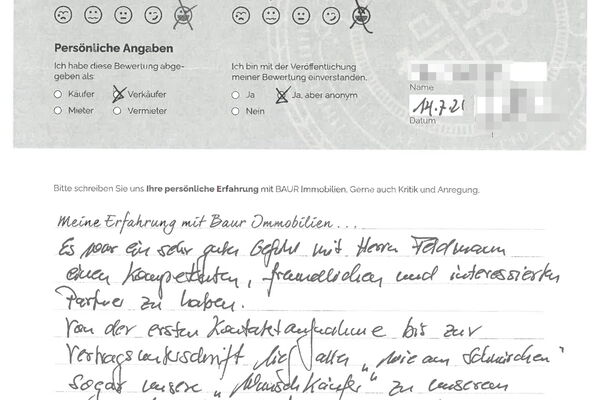 Persönliche Angaben
Ich habe diese Bewertung abge-
geben als:
Käufer
Verkäufer
Mieter
Vermieter
Ich bin mit der Veröffentlichung
meiner Bewertung einverstanden.
Ja
Ja, aber anonym
Nein
Name
14.7.21
Datum
Bitte schreiben Sie uns Ihre persönliche Erfahrung mit BAUR Immobilien. Gerne auch Kritik und Anregung.
Meine Erfahrung mit Baur Immobilien...
Es war ein sehr gutes Gefühl mit Herrn Feldmann
einen kompetenten, freundlichen und interessierten
Partner zu haben.
Von der ersten Kontaktaufnahme bis zur
Vertragsunterschrift lief alles „wie am Schnürchen"
Sogar unsere „Wunschkäufer" zu unserem